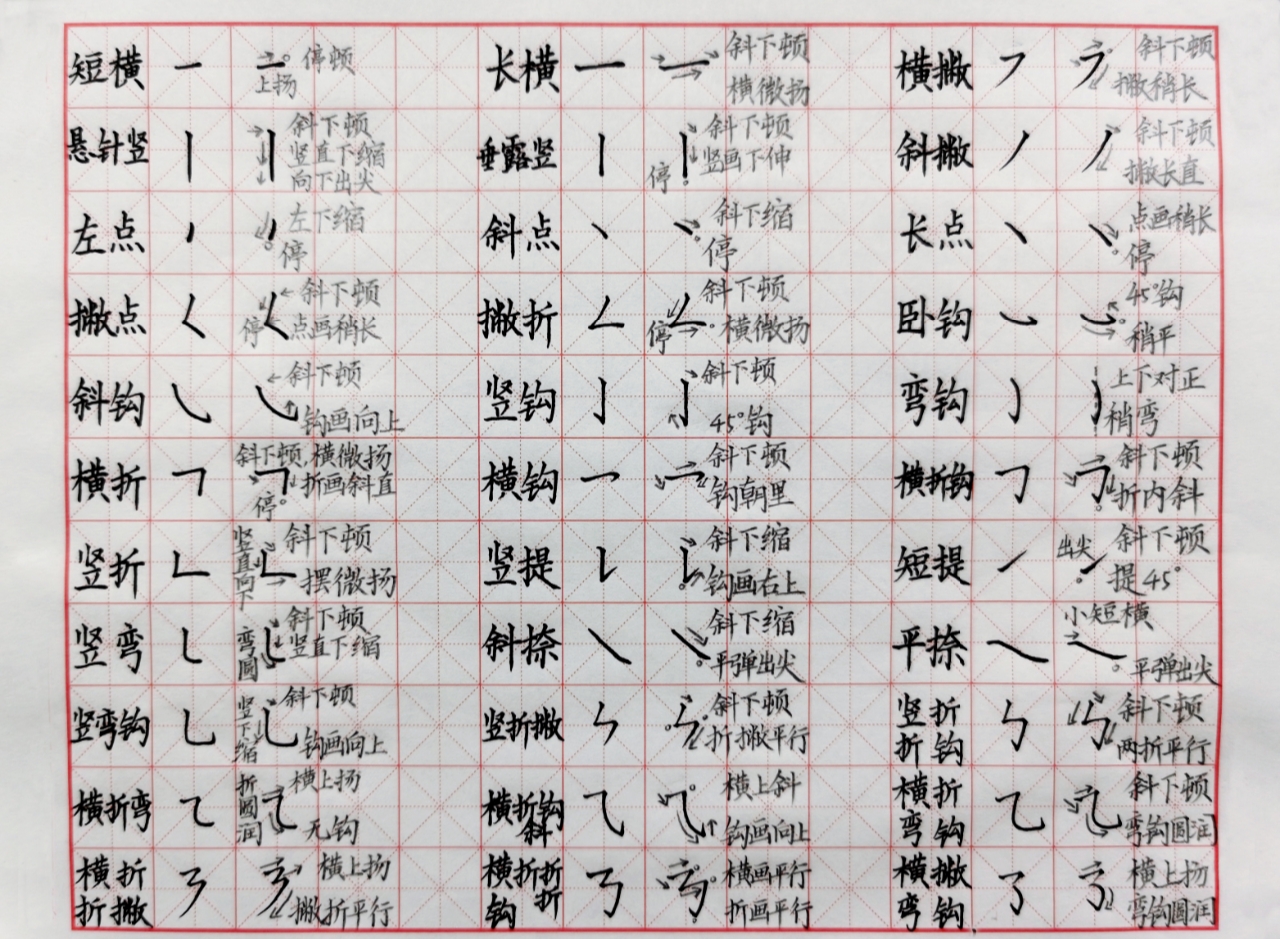 短横 一 停顿
上扬
长横 一 斜下顿
横微扬
横撇 斜下顿
撇稍长
悬针竖 丨 斜下顿
竖直下缩
向下出尖
垂露竖 丨 斜下顿
竖画下伸
停
斜撇 丿 斜下顿
撇长直
左点 左下缩
停
斜点 丶 斜下缩
停
长点 点画稍长
停
撇点 斜下顿
停 点画稍长
撇折 斜下顿
停 横微扬
卧钩 45°钩
稍平
斜钩 斜下顿
钩画向上
竖钩 亅 斜下顿
45°钩
弯钩 上下对正
稍弯
横折 斜下顿,横微扬
折画斜直
停
横钩 斜下顿
钩朝里
横折钩 斜下顿
折内斜
竖折 竖直向下 斜下顿
摆微扬
竖提 斜下缩
钩画右上
短提 出尖 斜下顿
提45°
竖弯 弯圆 斜下顿
竖直下缩
斜捺 斜下缩
平弹出尖
平捺 小短横
平弹出尖
竖弯钩 竖下缩 斜下顿
钩画向上
竖折撇 斜下顿
折撇平行
竖折
折钩 斜下顿
两折平行
横折弯 折圆润 横上扬
无钩
横折钩
斜 横上斜
钩画向上
横折
弯钩 斜下顿
弯钩圆润
横折
折撇 横上扬
撇折平行
横折折
钩 折 横画平行
折画平行
横撇
弯钩 横上扬
弯钩圆润